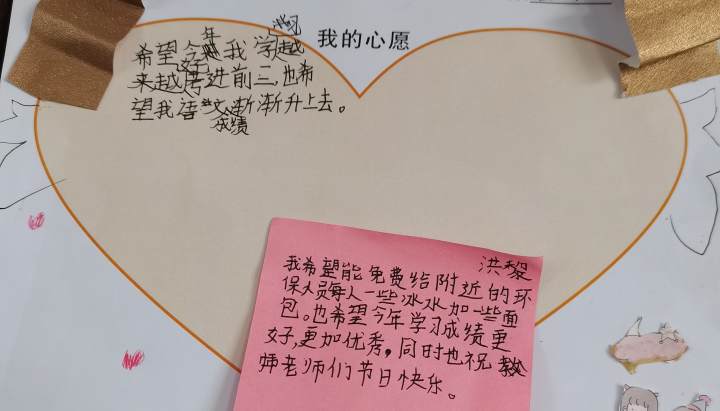 我的心愿
希望今年我学习越
来越好进前三,也希
望我语文成绩渐渐升上去。
洪黎
我希望能免费给附近的环
保人员每人一些冰水加一些面
包。也希望今年学习成绩更
好,更加优秀,同时也祝教
师老师们节日快乐。